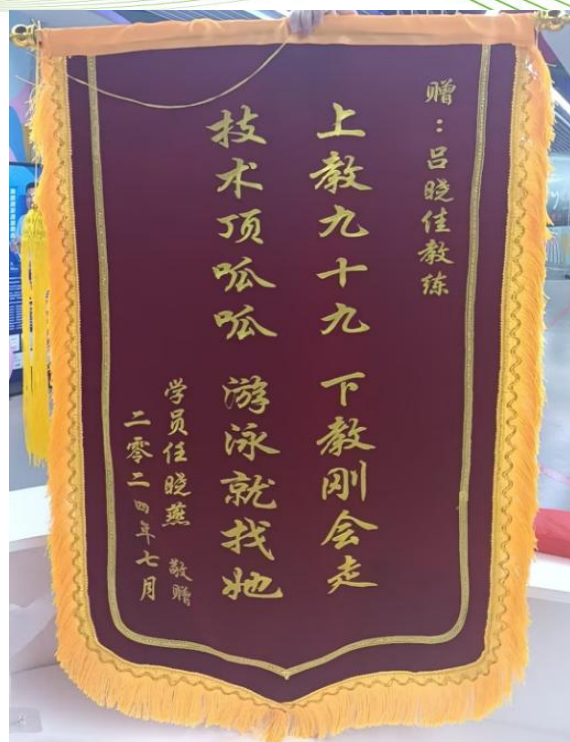 赠：吕晓佳教练
上教九十九 下教刚会走
技术顶呱呱 游泳就找她
学员任晓燕 敬赠
二零二四年七月